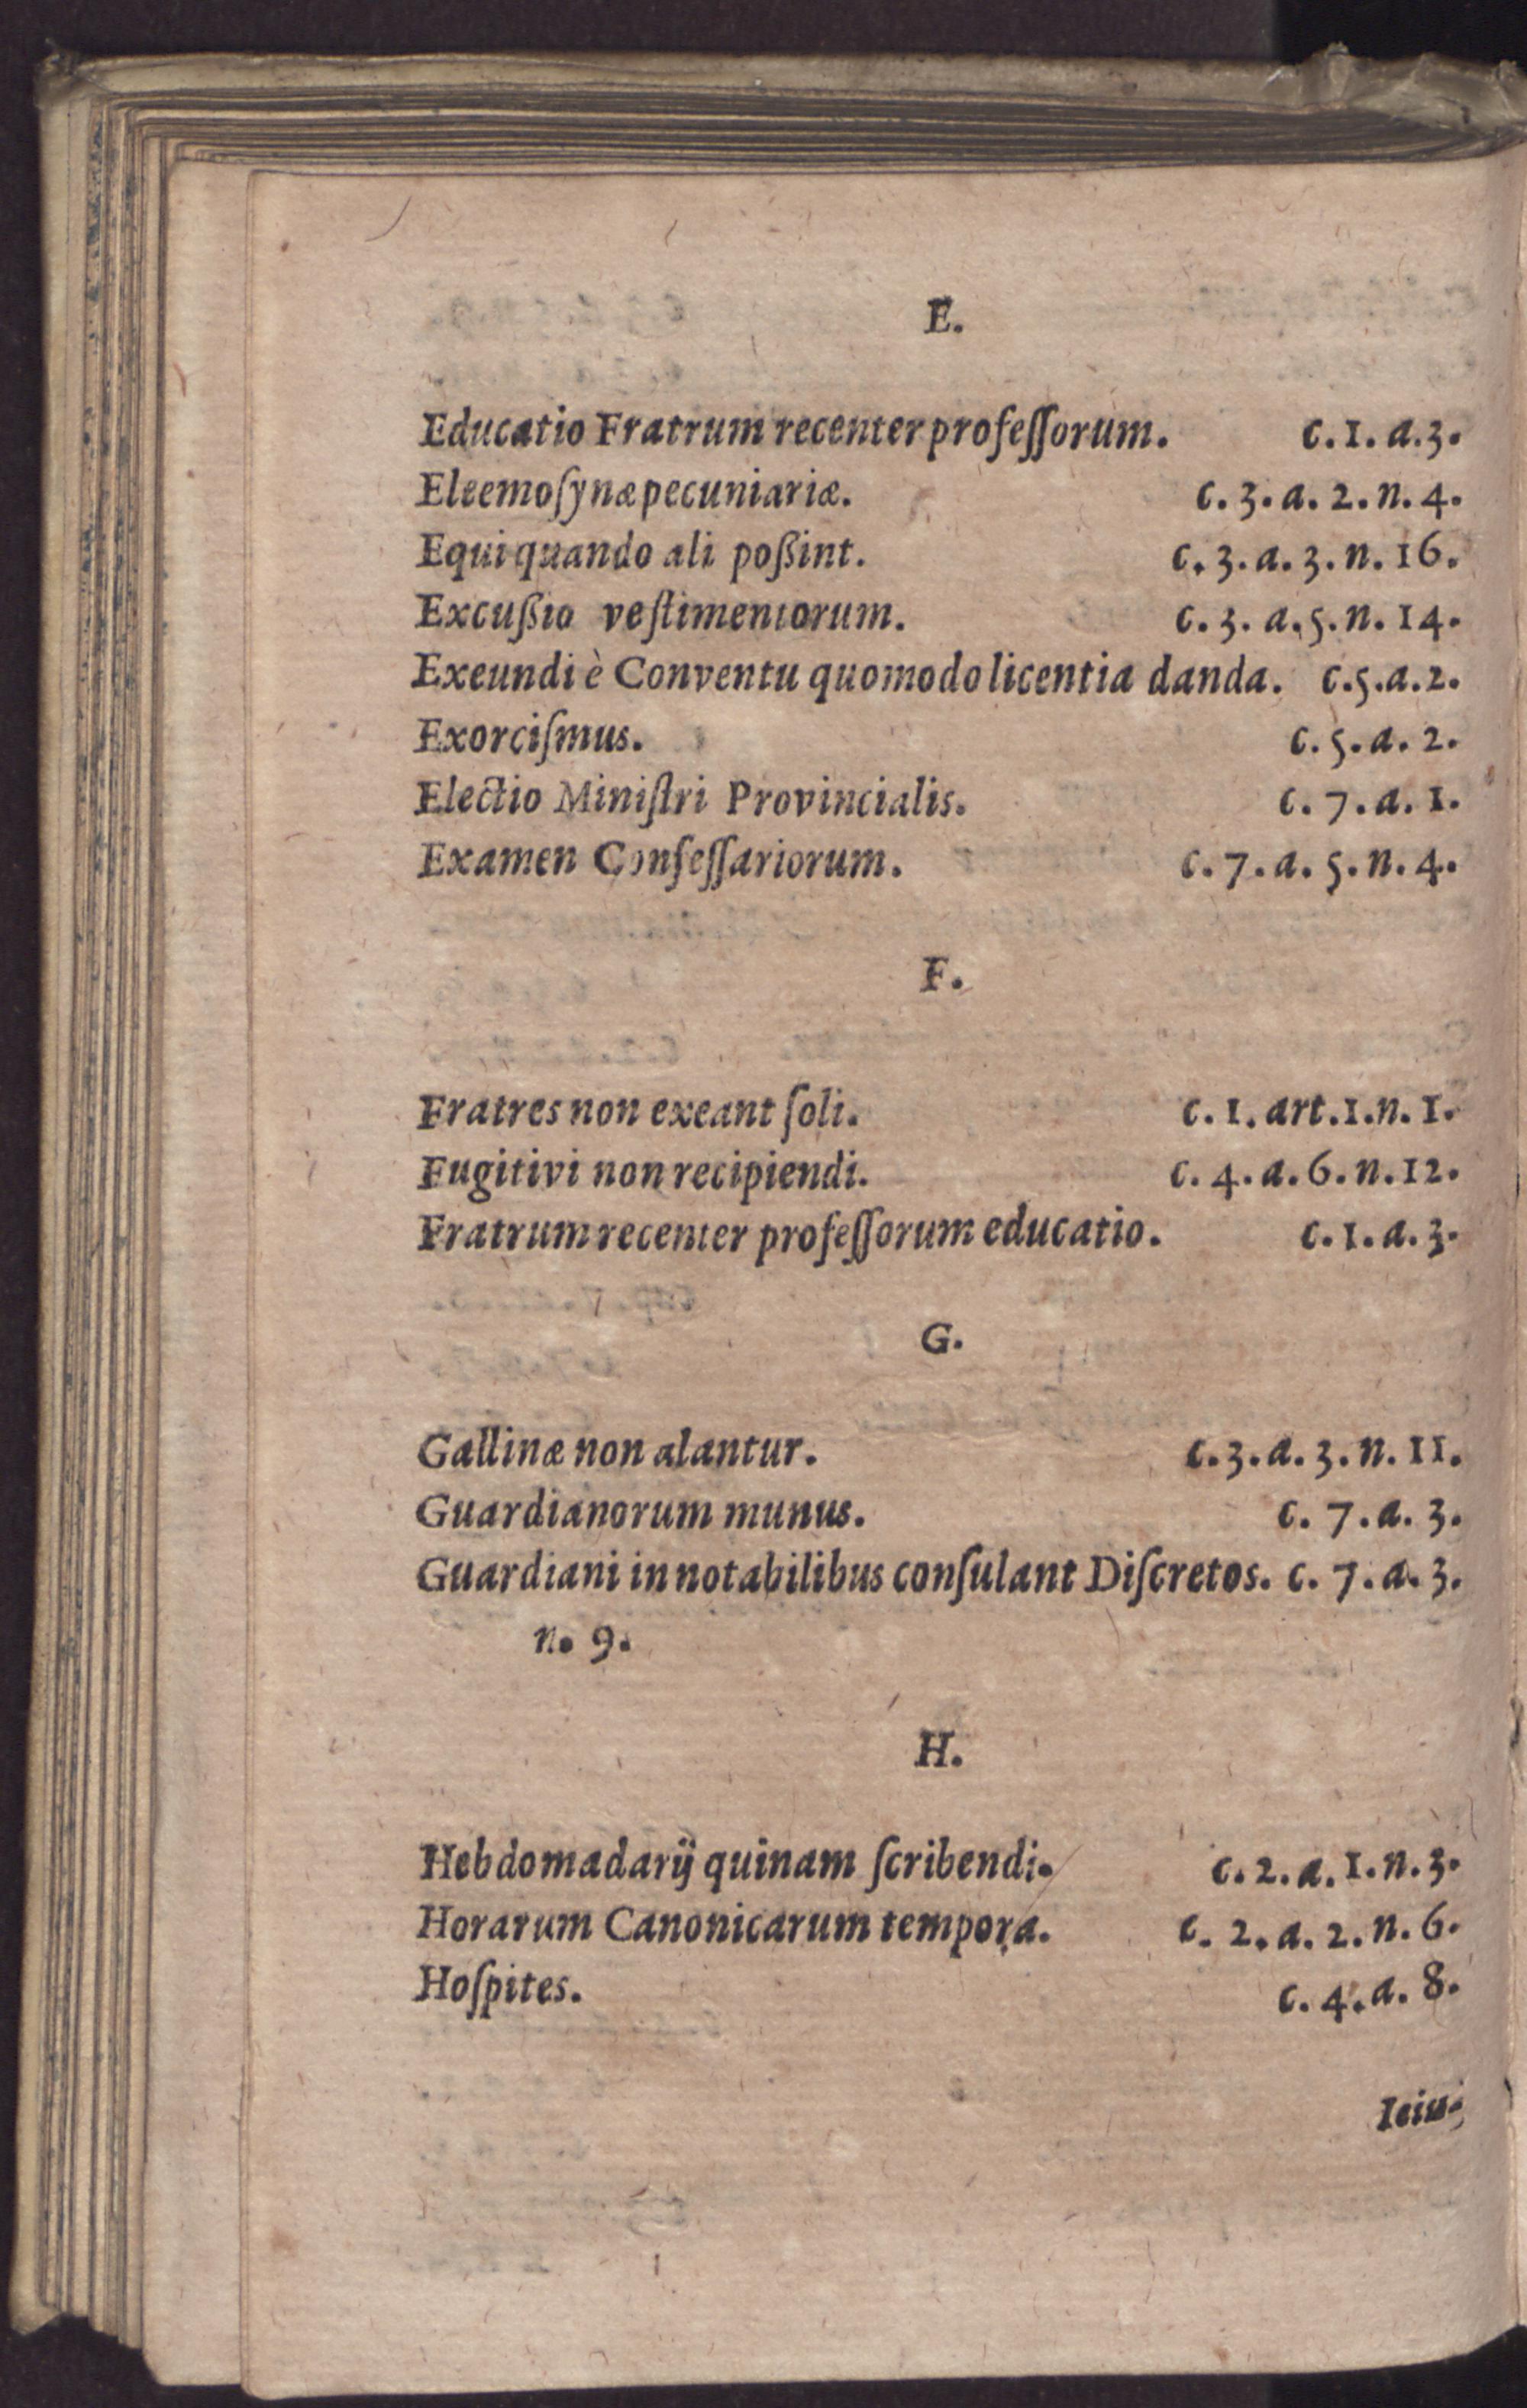 E.
Educatio Fratrum recenter profeſſorum. c. 1. a. 3.
Eleemoſynæ pecuniariæ. c. 3. a. 2. n. 4.
Equi quando ali poßint. c. 3. a. 3. n. 16.
Excußio veſtimentorum. c. 3. a. 5. n. 14.
Exeundi è Conventu quomodo licentia danda. c. 5. a. 2.
Exorciſmus. c. 5. a. 2.
Electio Miniſtri Provincialis. c. 7. a. 1.
Examen Confeſſariorum. c. 7. a. 5. n. 4.
F.
Fratres non exeant ſoli. c. 1. art. 1. n. 1.
Fugitivi non recipiendi. c. 4. a. 6. n. 12.
Fratrum recenter profeſſorum educatio. c. 1. a. 3.
G.
Gallinæ non alantur. c. 3. a. 3. n. 11.
Guardianorum munus. c. 7. a. 3.
Guardiani in notabilibus conſulant Diſcretos. c. 7. a. 3.
n. 9.
H.
Hebdomadarij quinam ſcribendi. c. 2. a. 1. n. 3.
Horarum Canonicarum tempora. c. 2. a. 2. n. 6.
Hoſpites. c. 4. a. 8.
Ieiu-